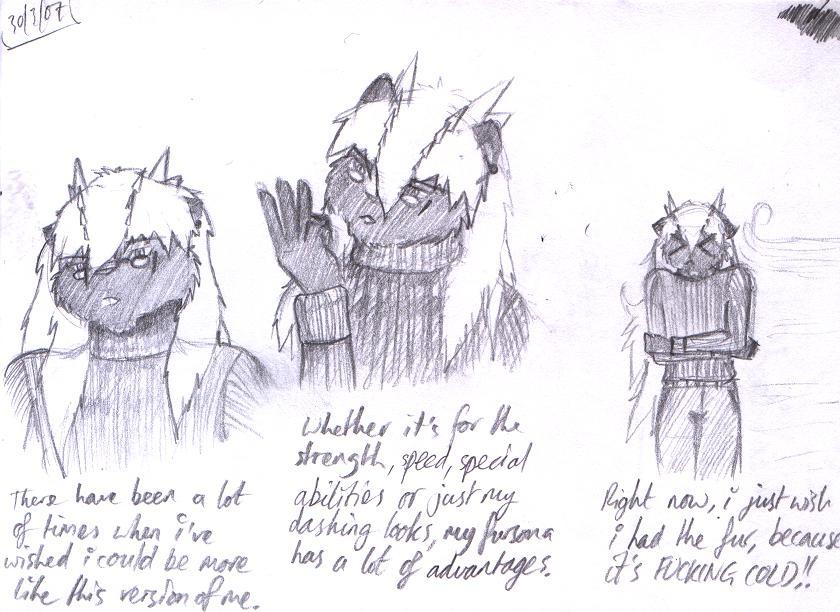 30/3/07
There have been a lot
of times when i've
wished i could be more
like this version of me.
Whether it's for the
strength, speed, special
abilities or just my
dashing looks, my fursona
has a lot of advantages.
Right now, i just wish
i had the fur, because
it's FUCKING COLD!!